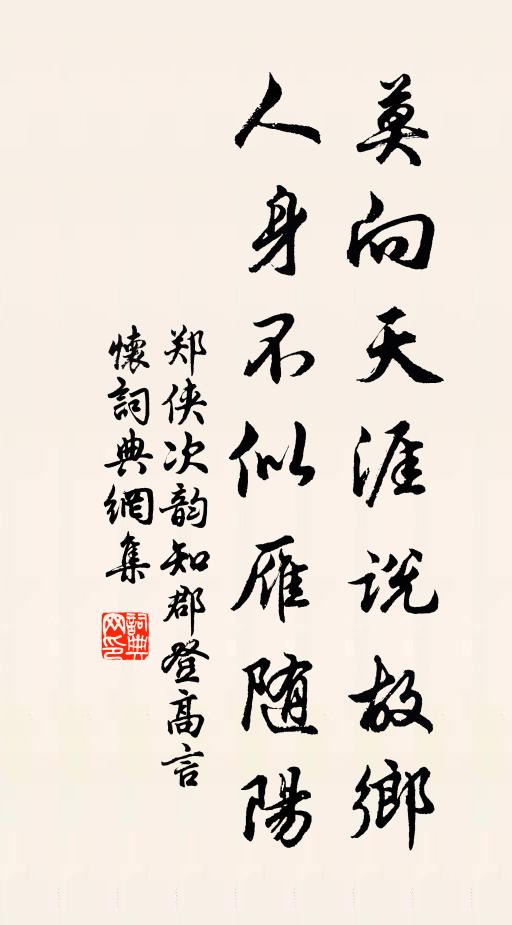 莫向天涯説故鄉
人身不似雁随陽
郑侠次韵知郡登高言
懷詞典網集
詞典网印